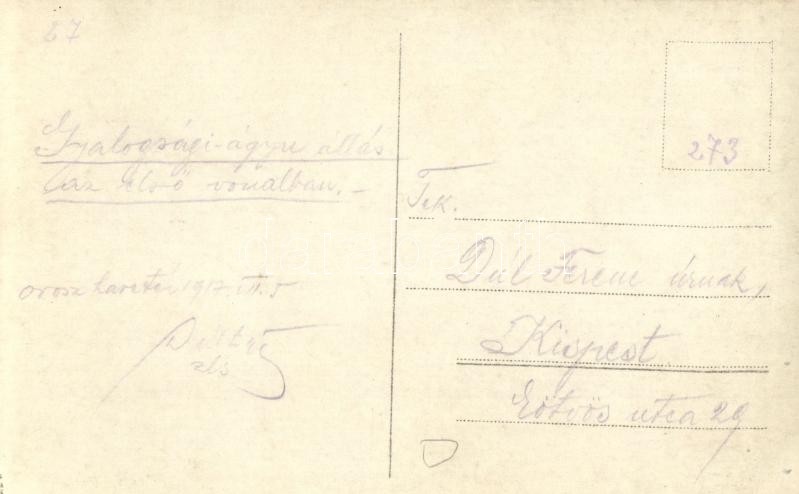 27
Gyalogsági-ágyu állás
az első vonalban.-
orosz harctér 1917.
zls
273
Tek.
Dél Ferenc úrnak,
Kispest
Eötvös utca 29